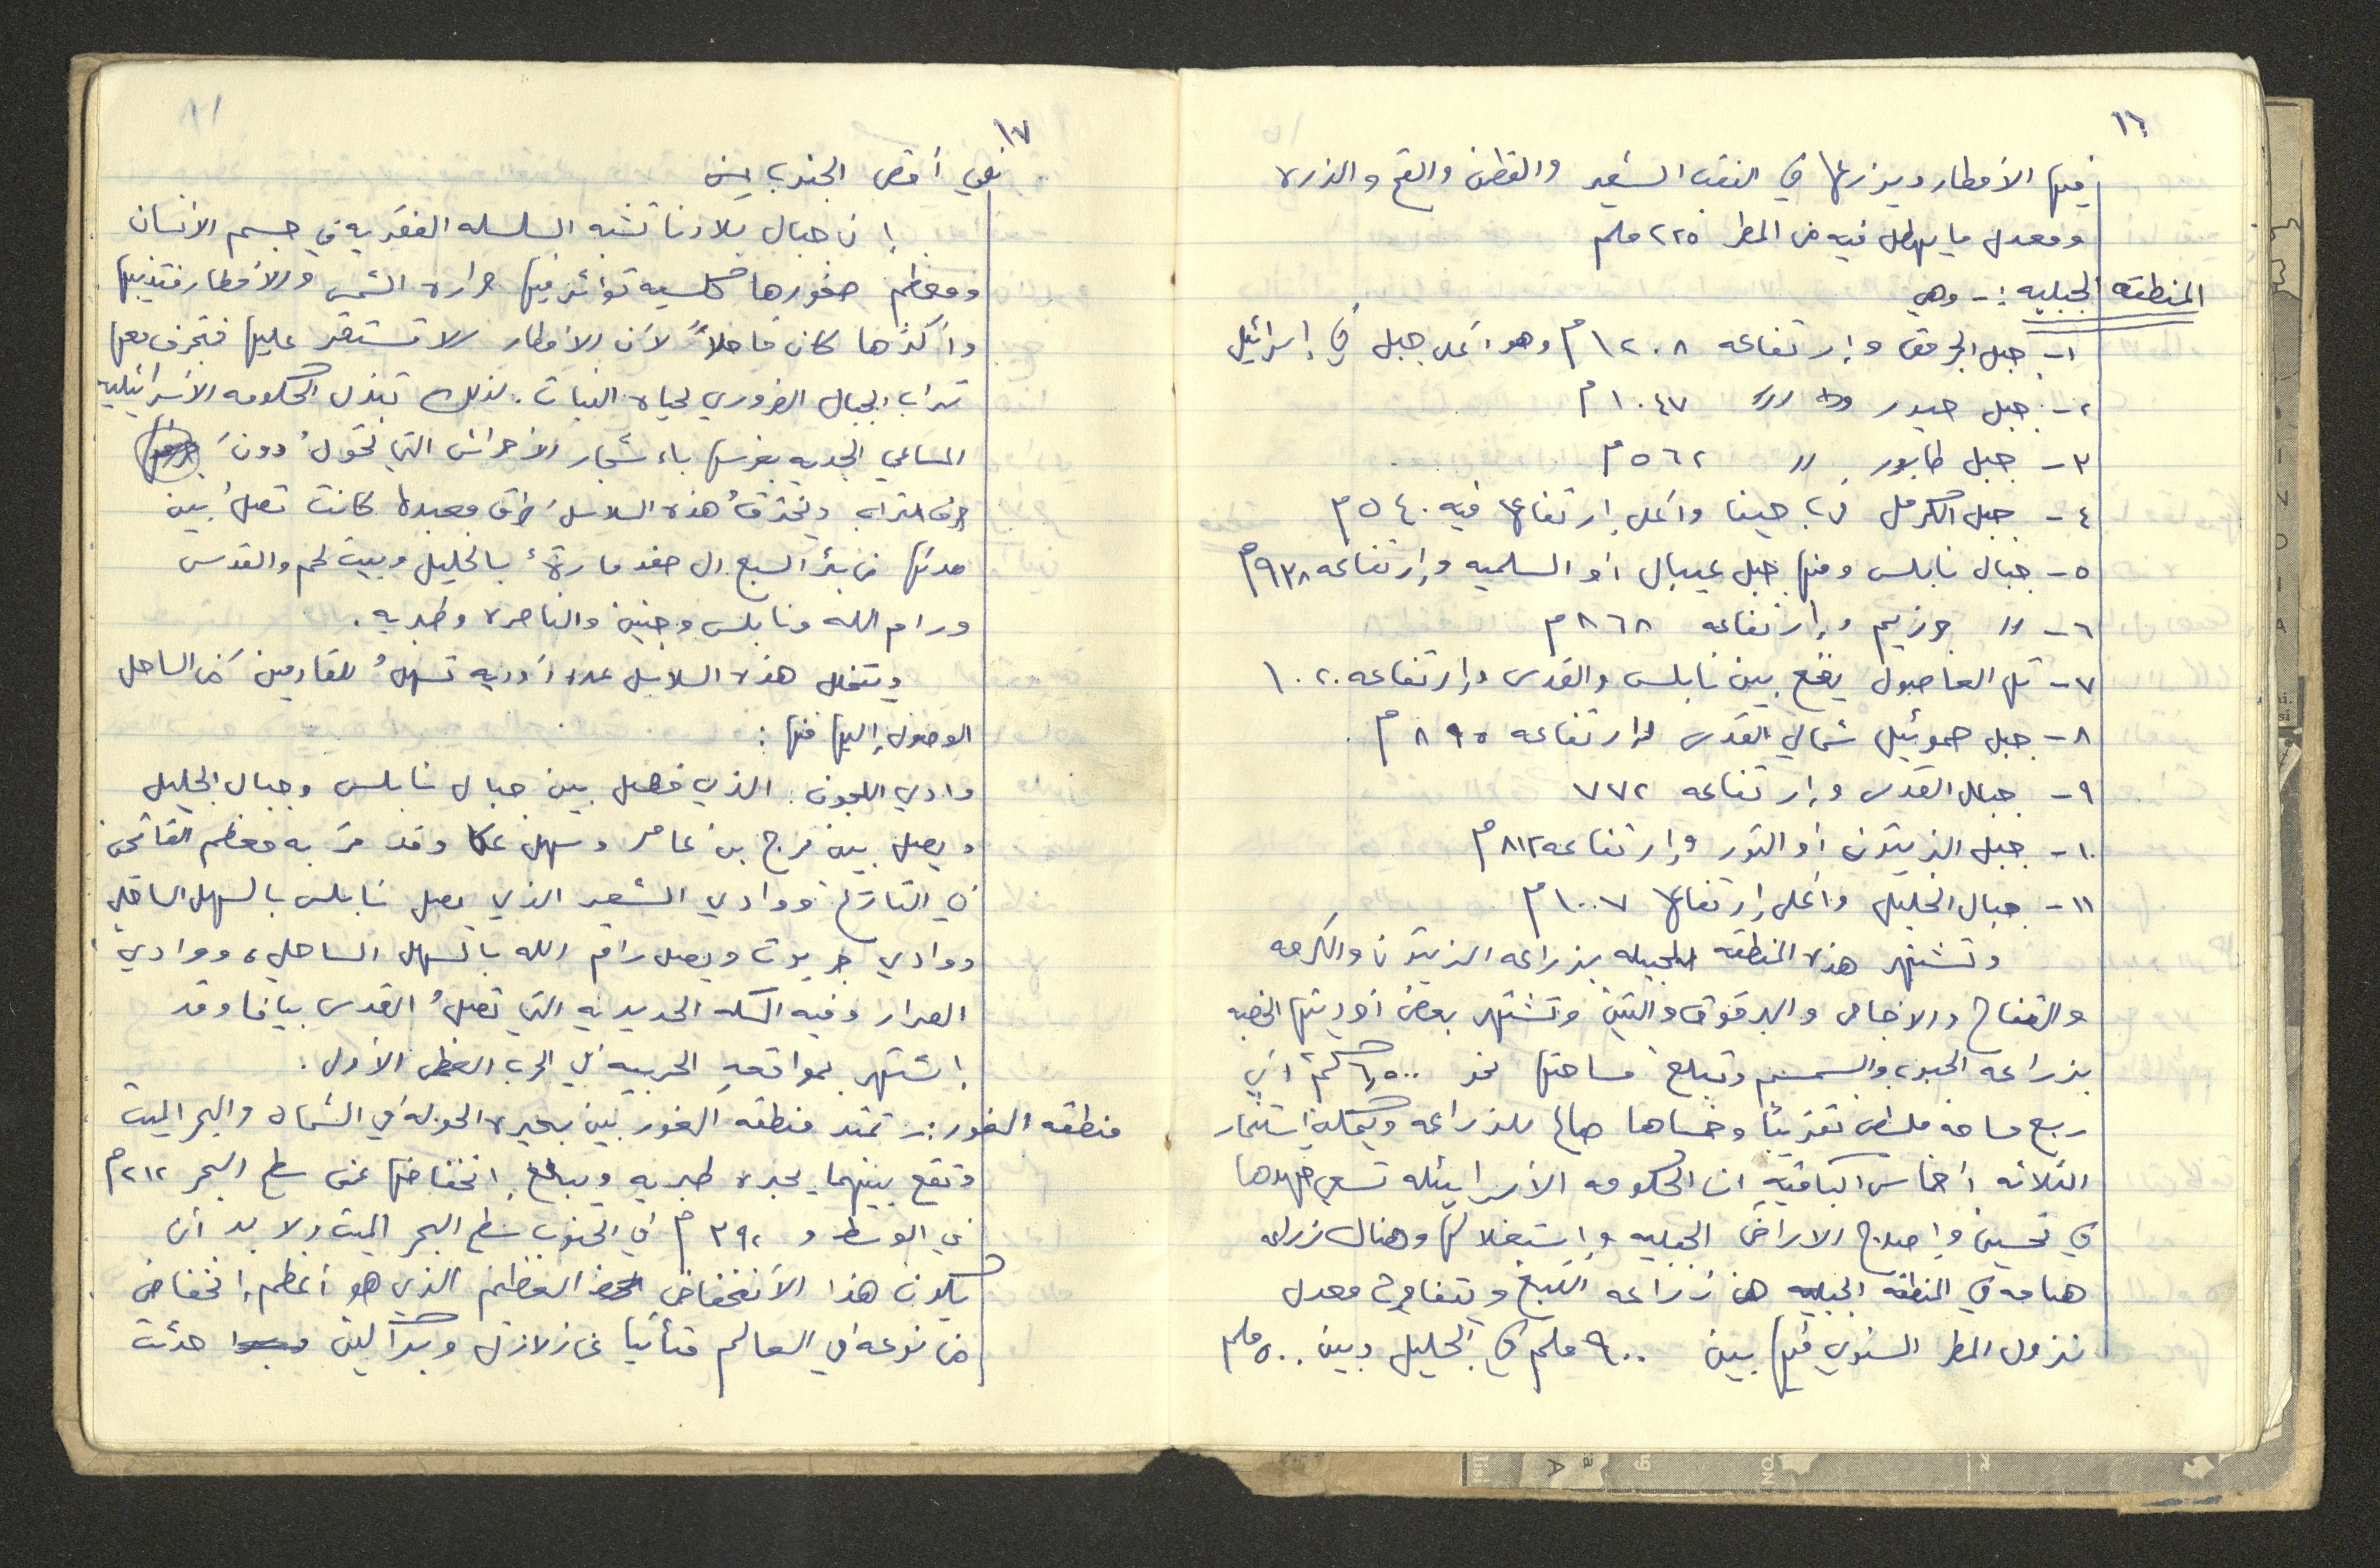 ١٦
فيها الأمطار ويزرعها في النقب الشعير والقطن والقمح والذره
ومعدل ما يهطل فيه من المطر ٢٢٥ ملم
المنطقه الجبليه :- وهي
١- جبل الجرمق وإرتفاعه ١٢٠٨ م وهو أعلى جبل في إسرائيل
٢- جبل حيدر " ١٠٤٧ م
٣- جبل طابور " ٥٦٢ م
٤- جبل الكرمل قرب حيفا وأعلى إرتفاعها فيه ٥٤٠ م
٥- جبال نابلس ومنها جبل عيبال أو السلميه وإرتفاعه ٩٣٨ م
٦- " جرزيم وإرتفاعه ٨٦٨ م
٧- تل العاصول يقع بين نابلس والقدس وإرتفاعه ١٠٢٠
٨- جبل صموئيل شمالي القدس وإرتفاعه ٨٩٥ م
٩- جبال القدس وإرتفاعه ٧٧٢
١٠- جبل الزيتون أو التور وإرتفاعه ٨١٢ م
١١- جبال الخليل وأعلى إرتفاعها ١٠٠٧ م
وتشتهر هذه المنطقه الجبيله بزراعه الزيتون والكرمه
والتفاح والاجاص والبرقوق والتين وتشتهر بعض أوديتها الخصبه
بزراعه الحبوب والسمسم وتبلغ مساحتها نحو ٦٥٠٠ كم أي
ربع مساحه فلسطين تقريباً وخمساها صالح للزراعه ويمكن إستثمار
الثلاثه أخماس الباقيه ان الحكومه الأسرايئله تسعى جهدها
في تحسين وإصلاح الاراضي الجبليه وإستغلالها وهناك زراعه
هامه في المنطقه الجبليه هي زراعه التبغ ويتفاوت معدل
نزول المطر السنوي فيها بين ٩٠٠ ملم في الجليل وبين ٥٠٠ ملم
١٧
في أقصى الجنوب
إن جبال بلادنا تشبه السلسله الفقريه في جسم الانسان
ومعظم صخورها كلسيه تؤثر فيها حراره الشمس والأمطار فتذيبها
وأكثرها كان قاحلاً لأن الامطار لا تستقر عليها فتجرف معها
تراب الجبال الضروري لحياه النبات. لذلك تبذل الحكومه الأسرائيليه
المساعي الجديه بغرسها بأشجار الأحراش التي تحولُ دونَ
جرف التراب وتخترقُ هذه السلاسل طرق معبده كانت تصلُ بين
مدنها من بئر السبع الى صفد مارةً بالخليل وبيت لحم والقدس
ورام الله ونابلس وجنين والناصره وطبريه.
ويتخلل هذه السلاسل عده أوديه تسهلُ للقادمين من الساحل
الوصول إليها منها :
وادي اللجون : الذي فصل بين جبال نابلس وجبال الجليل
ويصل بين مرج بن عامر وسهل عكا وقد مرّ به معظم الفاتحين
في التاريخ ووادي الشعير الذي يصل نابلس بالسهل الساحلي
ووادي جريوت ويصل رام الله بالسهل الساحلي، ووادي
الصرار وفيه السكه الحديديه التي تصلُ القدس بيافا وقد
إشتهر بمواقعه الحربيه في الحرب العظمى الأولى :
منطقه الغور :- تمتد منطقه الغور بين بحيره الحوله في الشمال والبحر الميت
وتقع بينهما بحيره طبريه ويبلغ إنخفاضها عن سطح البحر ٢١٢ م
في الوسط و ٣٩٢ م في الجنوب سطح البحر الميت ولا بد أن
يكون هذا الأنخفاض العظيم الذي هو أعظم إنخفاض
من نوعه في العالم متأتياً عن زلازل وبراكين حدثت